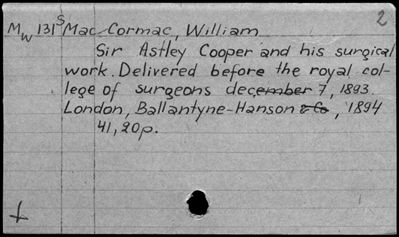 2
Mw 131 S Mac Cormac, William
Sir Astley Cooper and his surgical
work. Delivered before the royal col-
lege of surgeons december 7, 1893.
London, Ballantyne-Hanson & Co, 1894
41, 20p.